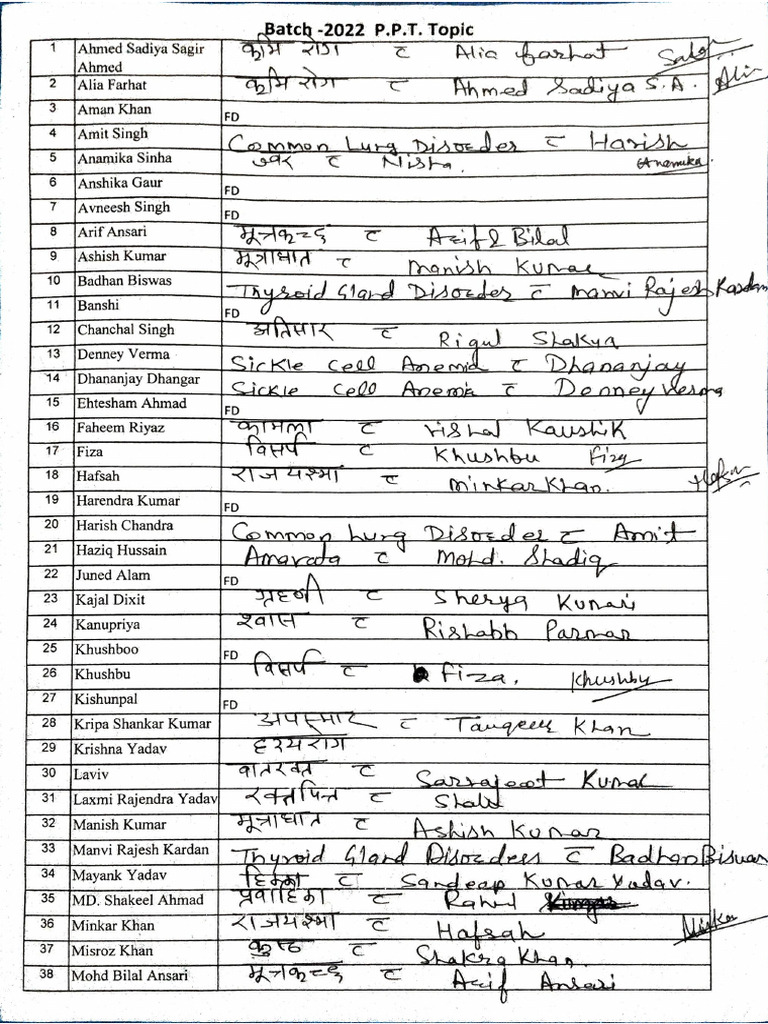 Batch -2022 P.P.T. Topic
1 Ahmed Sadiya Sagir Ahmed कृमि रोग c̄ Alia Farhat
2 Alia Farhat कृमि रोग c̄ Ahmed Sadiya S.A. Alia
3 Aman Khan FD
4 Amit Singh Common Lung Disorder c̄ Harish
5 Anamika Sinha ज्वर c̄ Nisha. Anamika.
6 Anshika Gaur FD
7 Avneesh Singh FD
8 Arif Ansari मूत्रकृच्छ्र c̄ Bilal
9 Ashish Kumar मूत्राघात c̄ Manish Kumar
10 Badhan Biswas Thyroid Gland Disorder c̄ Manvi Rajesh Kardam
11 Banshi FD
12 Chanchal Singh अतिसार c̄ Rigul Shakya
13 Denney Verma Sickle Cell Anemia c̄ Dhananjay
14 Dhananjay Dhangar Sickle Cell Anemia c̄ Denney Verma
15 Ehtesham Ahmad FD
16 Faheem Riyaz कामला c̄ Vishal Kaushik
17 Fiza विसर्प c̄ Khushbu Fiza
18 Hafsah राजयक्ष्मा c̄ Minkar Khan. Hafsah
19 Harendra Kumar FD
20 Harish Chandra Common Lung Disorder c̄ Amit
21 Haziq Hussain Amavata c̄ Mohd. Shadiq
22 Juned Alam FD
23 Kajal Dixit ग्रहणी c̄ Sherya Kumari
24 Kanupriya श्वास c̄ Rishabh Parmar
25 Khushboo FD
26 Khushbu विसर्प c̄ Fiza. Khushbu
27 Kishunpal FD
28 Kripa Shankar Kumar अपस्मार c̄ Tauqeer Khan
29 Krishna Yadav हृदयरोग
30 Laviv वातरक्त c̄ Sarrajeet Kumar
31 Laxmi Rajendra Yadav रक्तपित्त c̄
32 Manish Kumar मूत्राघात c̄ Ashish Kumar
33 Manvi Rajesh Kardan Thyroid Gland Disorders c̄ Badhan Biswas
34 Mayank Yadav हिक्का c̄ Sandeep Kumar Yadav.
35 MD. Shakeel Ahmad प्रवाहिका c̄ Rahul
36 Minkar Khan राजयक्ष्मा c̄ Hafsah Minkar
37 Misroz Khan कुष्ठ c̄ Shakra Khan
38 Mohd Bilal Ansari मूत्रकृच्छ्र c̄ Ansari